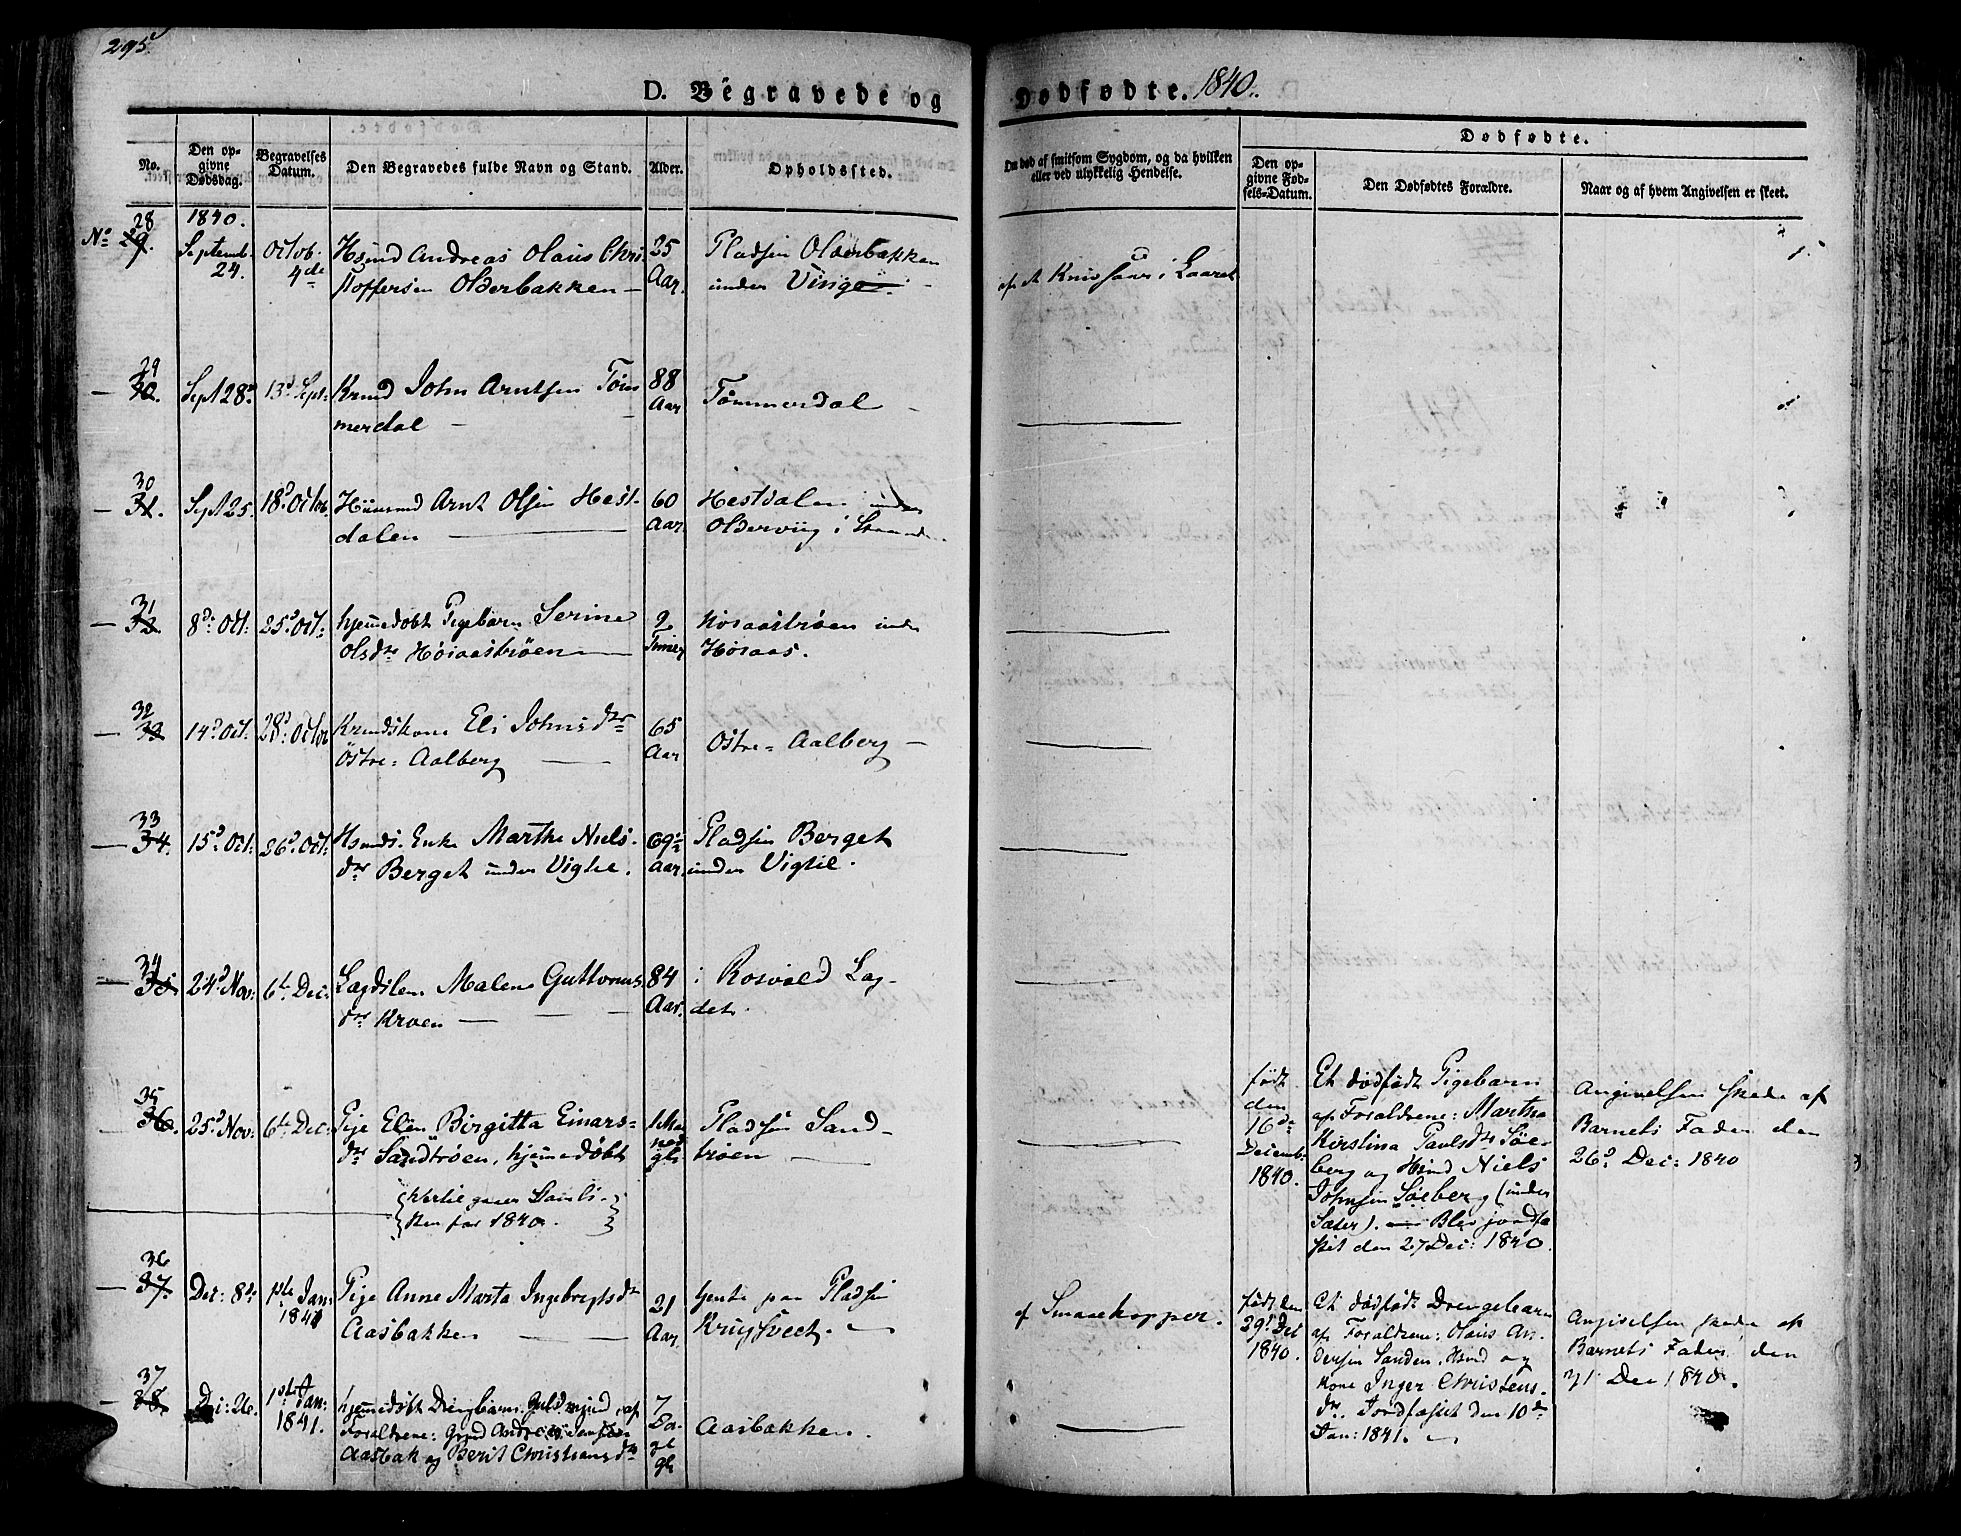 295.
D. Begravede og Dødfødte. 1840.
No.
Den opgivne Dødsdag.
Begravelses Datum.
Den Begravedes fulde Navn og Stand.
Alder.
Opholdssted.
Om død af smitsom Sygdom, og da hvilken
eller ved ulykkelig Hendelse.
Dødfødte.
Den opgivne Fødsels-Datum.
Den Dødfødtes Forældre.
Naar og af hvem Angivelsen er skeet.
1840.
No 28 29. Septemb. 24. Octob. 4de
Andreas Olaus Chri
stoffersen Olderbakken —
25 Aar.
Pladsen Olderbakken
under Vinge.
af et i Laaret
— 29 30. Sept 28 13d Sept:
John Arntsen Töm
merdal —
88 Aar
Tømmerdal —
— 30 31. Sept 25. 18d Octob.
Huusmd Arnt Olsen Hest-
dalen —
60 Aar
Hestdalen under
Oldervig i
— 31 32 8d Oct: 25d Oct:
hjemedøbt Pigebarn Serine
Olsdr Høsaastrøen —
2 Timer
Høsaastrøen under
Høsaas.
— 32 33 14d Oct. 28d Octob
Eli Johnsdr
Östre Aalberg —
65 Aar
Østre Aalberg —
— 33 34. 15d Oct. 26d Oct:
Hsmds. Enke Marthe Niels
dr Berget under Vigtil.
69 Aar.
Pladsen Berget
under Vigtil.
— 34 35. 24d Nov: 6te Dec:
Lægdslem Malene Guttorms
dr Kroen —
84 Aar.
i Rosvold Læg-
det.
— 35 36. 25d Nov: 6te Dec:
Pige Elen Birgitta Einars-
dr Sandtrøen, hjemedøbt
Pladsen Sand-
trøen —
født
den
16de
Decemb:
1840.
Et dødfødt Pigebarn
af Forældrene: Martha
Kirstina Paulsdr Søe-
berg og Hsmd Niels
Johnsen Søeberg (under
Sæter). — Blev jordfæ
stet den 27 Dec: 1840.
Angivelsen skede af
Barnets Fader den
26d Dec: 1840
for 1840.
— 36 37. Dec: 8de 1ste Jan: 1841
Pige Anne Marta Ingebrigtsdr
Aasbakken —
21 Aar
tjente paa Pladsen
af Smaaekopper.
født den
29d Dec
1840.
Et dødfødt Drengebarn
af Forældrene: Olaus An-
dersen Sanden, Hsmd og
Kone Inger Christens-
dr. Jordfæstet den 10de
Jan: 1841.
Angivelsen skede af
Barnets Fader den
31 Dec 1840.
— 37 38. Dec: 26. 1ste Jan: 1841.
hjemedøbt Drengebarn, af
Forældrene: Andreas Jensen
Aasbak og Berit Christiansdr
7 Da-
ge
gl:
Aasbakken.